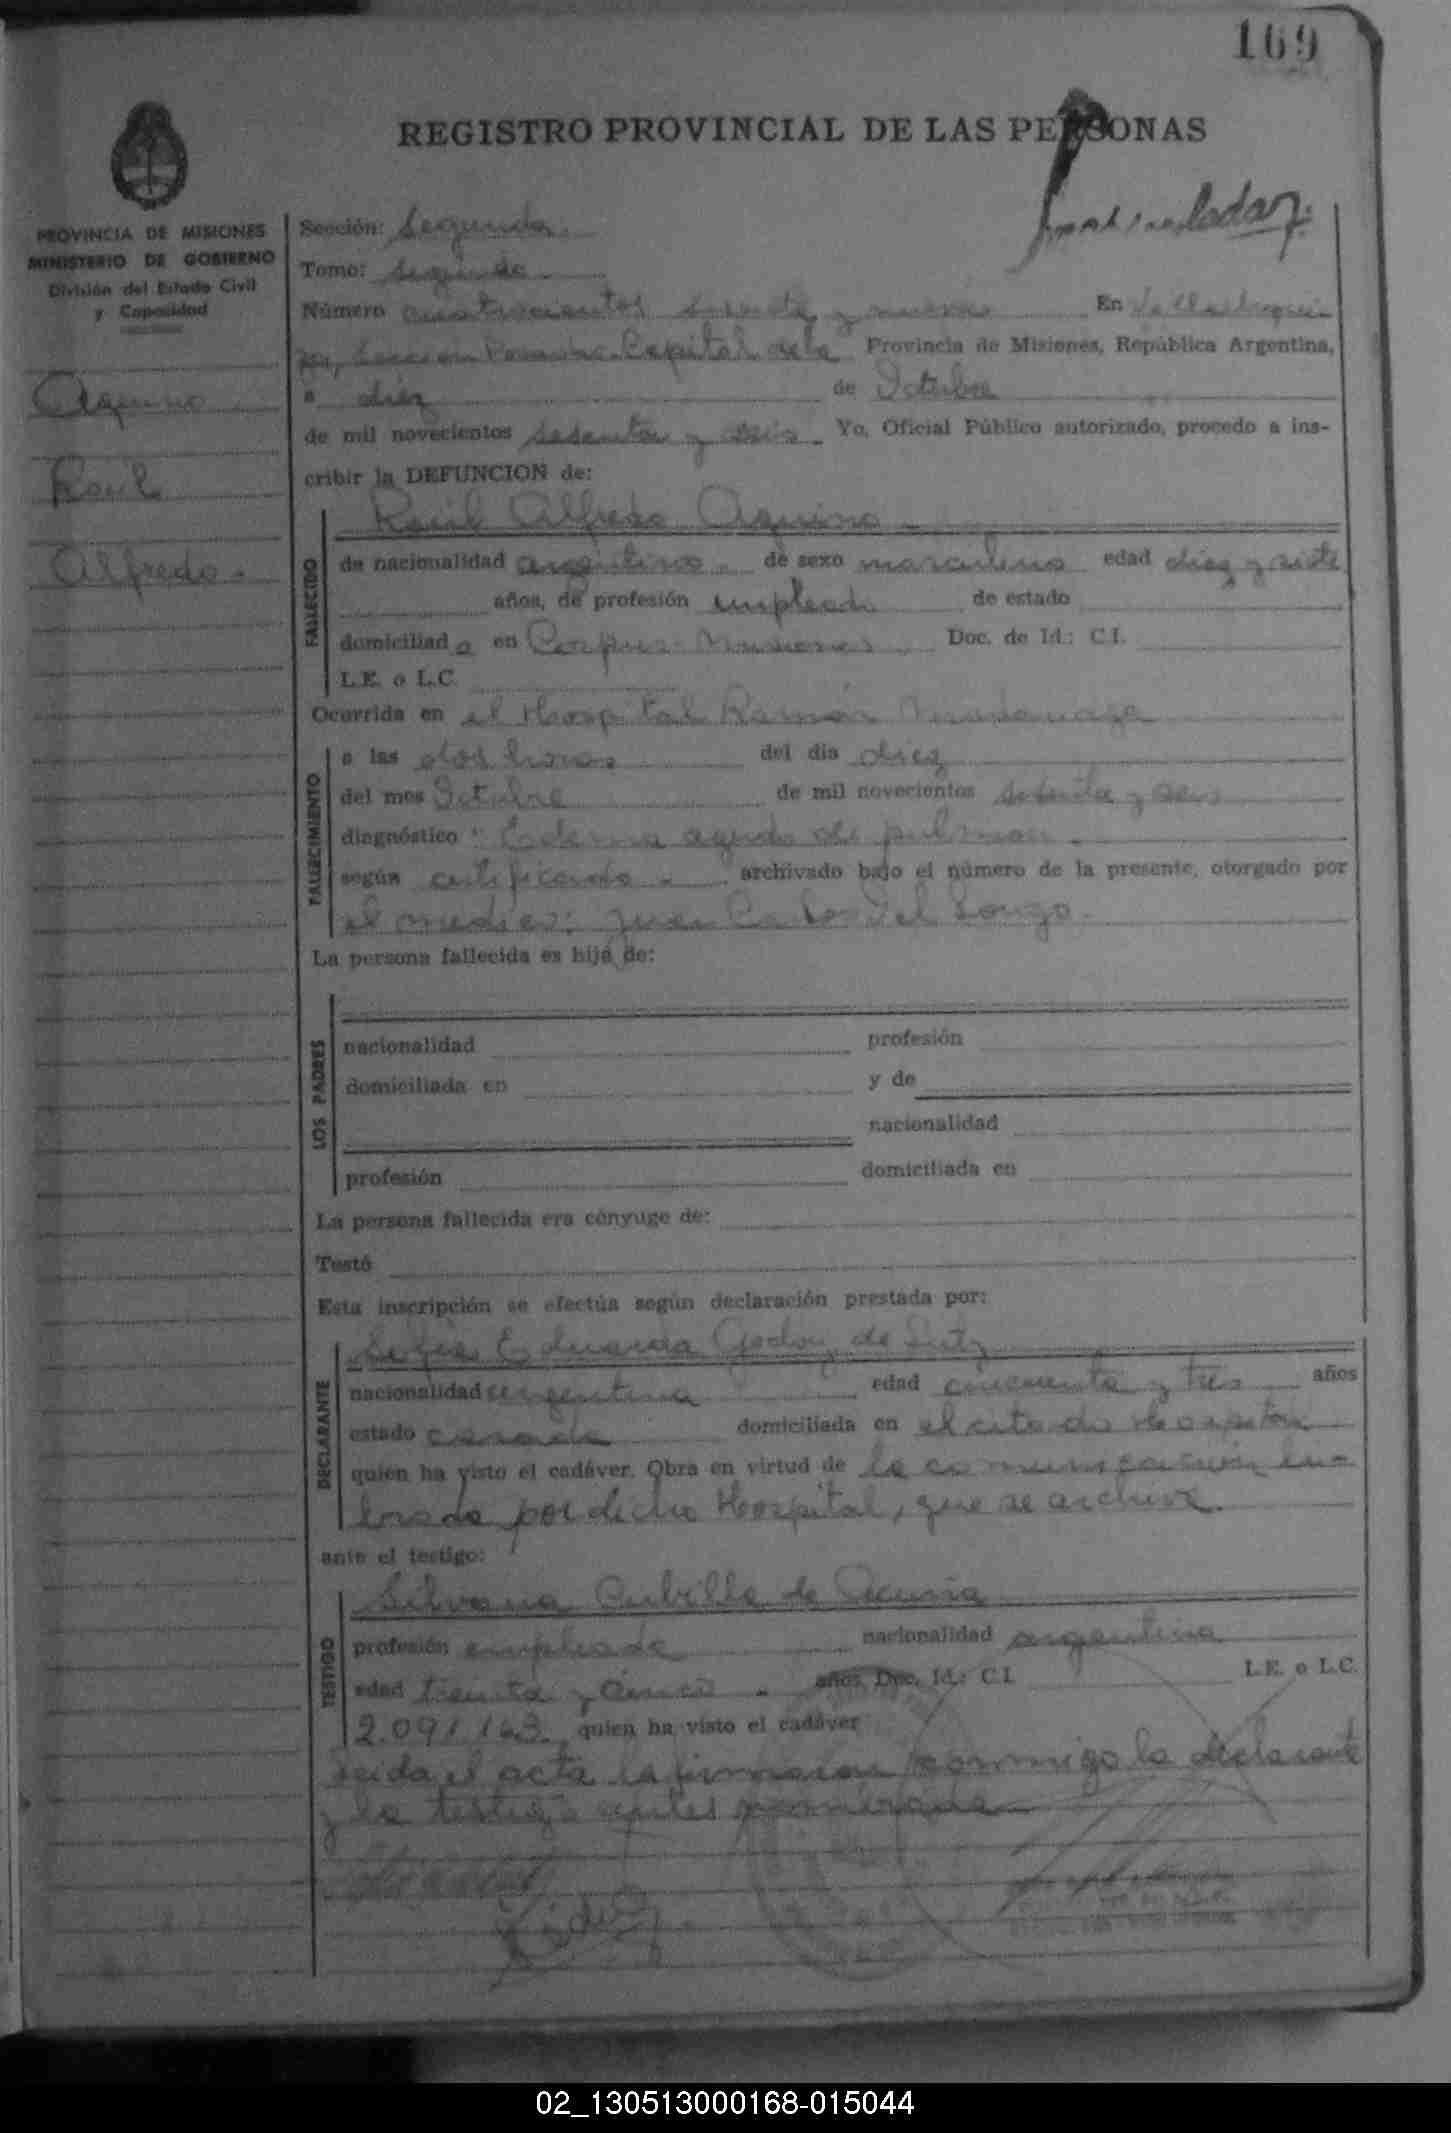 169
REGISTRO PROVINCIAL DE LAS PERSONAS
PROVINCIA DE MISIONES
MINISTERIO DE GOBIERNO
División del Estado Civil
y Capacidad
Aquino
Raúl
Alfredo.
Sección: Segunda.
Tomo: Segundo
Número cuatrocientos y nueve En Villa
Sección Capital de la Provincia de Misiones, República Argentina,
a diez de Octubre
de mil novecientos sesenta y seis. Yo, Oficial Público autorizado, procedo a ins-
cribir la DEFUNCION de:
Raúl Alfredo Aquino
FALLECIDO
de nacionalidad argentino. de sexo masculino edad diez y siete
años, de profesión empleado de estado
domiciliado en Corpus-Misiones. Doc. de Id.: C.I.
L.E. o L.C.
Ocurrida en el Hospital Ramón Madariaga
FALLECIMIENTO
a las dos horas del día diez
del mes Octubre de mil novecientos sesenta y seis
diagnóstico: Edema agudo de pulmón.
según certificado. archivado bajo el número de la presente, otorgado por
el medico: Juan Carlos Del Longo.
La persona fallecida es hija de:
LOS PADRES
nacionalidad profesión
domiciliada en y de
nacionalidad
profesión domiciliada en
La persona fallecida era cónyuge de:
Testó
Esta inscripción se efectúa según declaración prestada por:
DECLARANTE
Eduarda Godoy de
nacionalidad argentina edad cincuenta y tres años
estado casada domiciliada en el citado Hospital
quien ha visto el cadáver. Obra en virtud de la comunicación en-
por dicho Hospital, que se archiva.
ante el testigo:
TESTIGO
Silvana Cubilla de Acuña
profesión empleada nacionalidad argentina
edad treinta y cinco. años, Doc. Id.: C.I. L.E. o L.C.
2.091.163. quien ha visto el cadáver
Leida el acta la firmaron conmigo la declarante
y la testigo antes nombrada
02_130513000168-015044